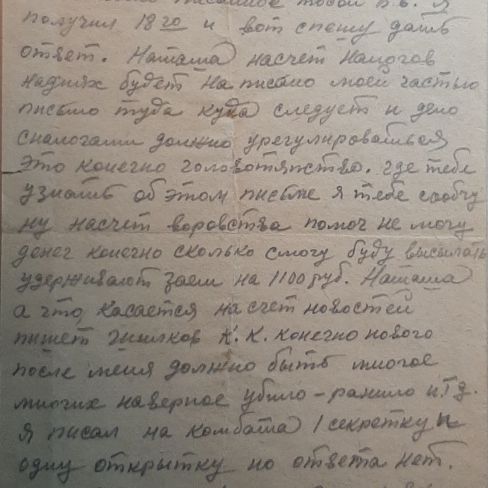 писанное тобой п.в. Я
получил 18го и вот спешу дать
ответ. Наташа насчет налогов
наднях будет написано моей частью
письмо туда куда следует и дело
сналогами должно урегулироваться
это конечно головотяпство. где тебе
узнать об этом письме я тебе сообчу
ну насчет воровства помоч не могу
денег конечно сколько смогу буду высылать
удерживают заем на 1100 руб. Наташа
а что касается насчет новостей
пишет К.К. конечно нового
после меня должно быть многое
многих наверное убило-ранило и т д.
Я писал на комбата 1 секретку и
одну открытку но ответа нет.